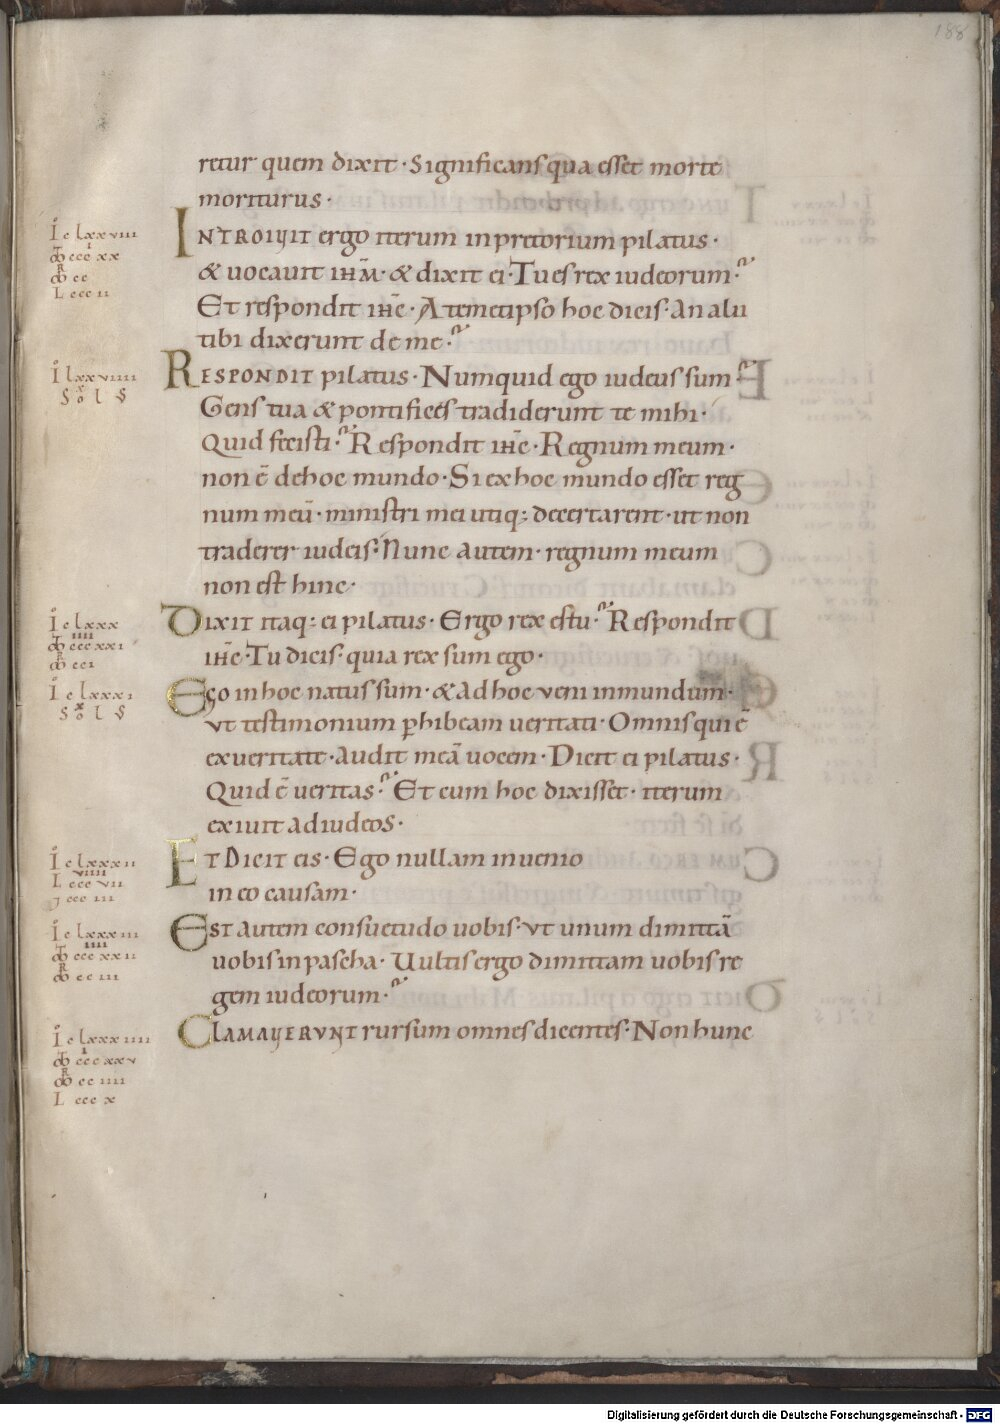 188
retur quem dixit · Significans qua esset morte
moriturus ·
INTROIVIT ergo iterum in pretorium pilatus ·
& uocauit ihm̄ · & dixit ei · Tu es rex iudeorum?
Et respondit ihc̄ · A temetipso hoc dicis · an alii
tibi dixerunt de me?
RESPONDIT pilatus · Numquid ego iudeus sum?
Gens tua & pontifices tradiderunt te mihi ·
Quid fecisti? Respondit ihc̄ · Regnum meum ·
non ē de hoc mundo · Si ex hoc mundo esset reg
num meū · ministri mei utiq; decertarent · ut non
traderer iudeis · Nunc autem · regnum meum
non est hinc ·
DIXIT itaq; ei pilatus · Ergo rex es tu? Respondit
ihc̄ · Tu dicis · quia rex sum ego ·
Ego in hoc natus sum · & ad hoc veni in mundum ·
vt testimonium ꝑhibeam ueritati · Omnis qui ē
ex ueritate · audit meā uocem · Dicit ei pilatus ·
Quid ē ueritas? Et cum hoc dixisset · iterum
exiuit ad iudeos ·
ET DICIT eis · Ego nullam inuenio
in eo causam ·
EST autem consuetudo uobis · vt unum dimittā
uobis in pascha · Uultis ergo dimittam uobis re
gem iudeorum?
CLAMAVERVNT rursum omnes dicentes · Non hunc
I c lxxviii
ccc xx
cc
L ccc ii
I lxxviiii
S o l S
I c lxxx
ccc xxi
cci
I c lxxxi
S o l S
I c lxxxii
L ccc vii
ccc iii
I c lxxxiii
ccc xxii
cc iii
I c lxxxiiii
ccc xxv
cc iiii
L ccc x
Digitalisierung gefördert durch die Deutsche Forschungsgemeinschaft - DFG